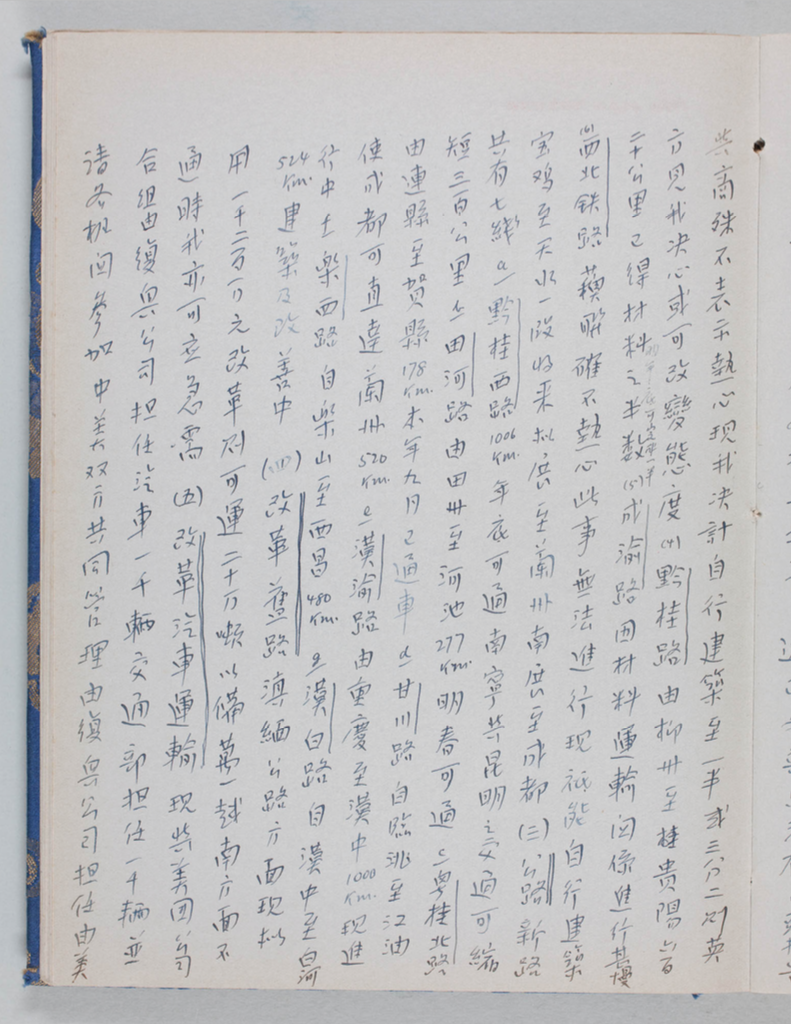 共商殊不表示熱心現我決計自行建築至一半或三分二則英
方見我決心或可改變態度(4)黔桂路由柳州至桂貴陽六百
二十公里已得材料之半數(5)成渝路因材料運輸困係進行甚慢
(6)西北铁路蘓聯確不熱心此事無法進行現祇能自行建築
宝鸡至天水一段将来拟展至蘭州南展至成都(三)公路新路
共有七綫a一黔桂西路1006 Km.年底可通南寧共昆明之交通可縮
短三百公里b一田河路由田州至河池277 Km.明春可通c一粤桂北路
由連縣至贺縣178 Km.本年九月已通車d一甘川路自臨洮至江油
使成都可直達蘭州520 Km. e一漢渝路由重慶至漢中1000 Km.現進
行中f一樂西路自樂山至西昌480 Km. g一漢白路自漢中至白河
524 Km.建築及改善中(四)改革舊路滇緬公路方面現拟
用一千二百万元改革則可運二十万噸以備萬一越南方面不
通時我亦可应急需(五)改革汽車運輸現共美国公司
合組由復興公司担任汽車一千輛交通部担任一千輛並
請各机関參加中美双方共同管理由復興公司担任由美